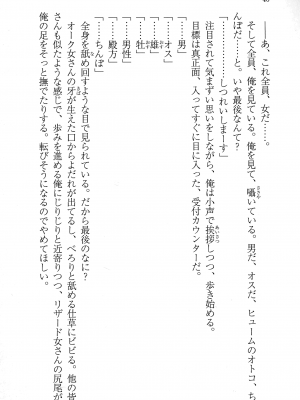 ――あ、これ全員、女だ……。
そして全員、俺を見ている。俺を見て、囁いている。男だ、オスだ、ヒュームのオトコ、ち
んぽだ……と。いや最後なんて?
「……しつれいしまーす」
注目されて気まずい思いをしながら、俺は小声で挨拶しつつ、歩き始める。
目標は真正面、入ってすぐに目に入った、受付カウンターだ。
「……男」
「……オス」
「……雄」
「……牡」
「……男性」
「……殿方」
「……ちんぽ」
全身を舐め回すような目で見られている。だから最後のなに?
オーク女さんの牙が生えた口からよだれが出てるし、ぺろりと舐める仕草にビビる。他の皆
さんも似たような感じで、歩みを進める俺にじりじりと近寄りつつ、リザード女さんの尻尾が
俺の足をそっと撫でたりする。転びそうになるのでやめてほしい。